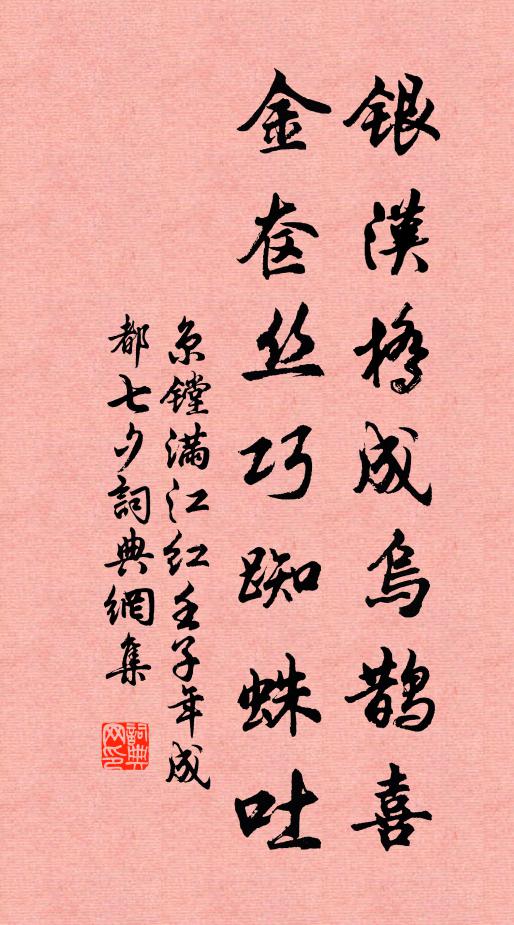 銀漢橋成烏鵲喜
金奁丝巧踟蛛吐
京镗滿江红壬子年成
都七夕詞典網集
詞典网印